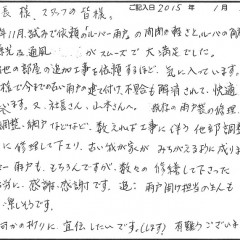 ご記入日 2015年 1月
長様、スタッフの皆様。
年11月、試みで依頼のルーバー雨戸の開閉の軽さと、ルーバの開
光&通風 がスムーズで大満足でした。
他の部屋の追加工事を依頼するほど、気に入っています。
様で今までの古い雨戸の建て付け、不具合も解消されて、快適
す。又、社長さん、山本さんへ。我ねの雨戸の修理、
調整、網戸などなど、数えれば工事に伴う他部調整
に修理して下さり、古い我が家が みちがえるように成りま
ー雨戸も、もちろんですが、数々の修繕して下さった
に、感謝、感謝です。追: 雨戸開け担当の主人も
嬉しそうです。
何かの折りに、宣伝したいです。(します) 有難うございま